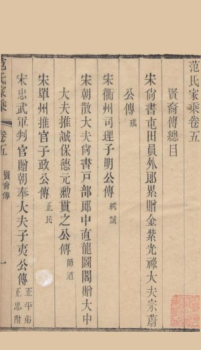 范氏家乘卷五
賢裔傳總目
宋尚書屯田員外郎累贈金紫光祿大夫
公傳
宋衢州司理子明公傳
宋朝散大夫尚書戶部郎中直龍圖閣贈大中
大夫推誠保德元勳貫之公傳
宋單州推官子政公傳 正民
宋忠武軍判官贈朝奉大夫子夷公傳 正平
范氏家乘
卷五
賢裔傳
一